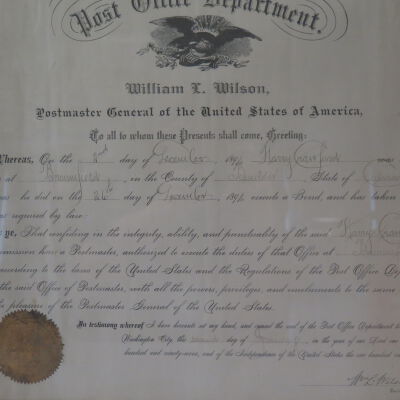 Post Office Department.
William L. Wilson,
Postmaster General of the United States of America,
To all to whom these Presents shall come, Greeting:
Whereas, On the 2nd day of December 1896 Harry Crawford was
at Broomfield in the County of Boulder State of
he did on the 26th day of December 1896 execute a Bond, and has taken
as required by law:
That confiding in the integrity, ability, and punctuality of the said Harry
commission him a Postmaster, authorized to execute the duties of that Office at
according to the laws of the United States and the Regulations of the Post Office
the said Office of Postmaster, with all the powers, privileges, and emoluments to the same
the pleasure of the Postmaster General of the United States.
In testimony whereof I have hereunto set my hand, and caused the seal of the Post Office Department to
Washington City, the day of in the year of our Lord one
hundred and ninety-seven, and of the Independence of the United States the one hundred
Wm L. Wilson